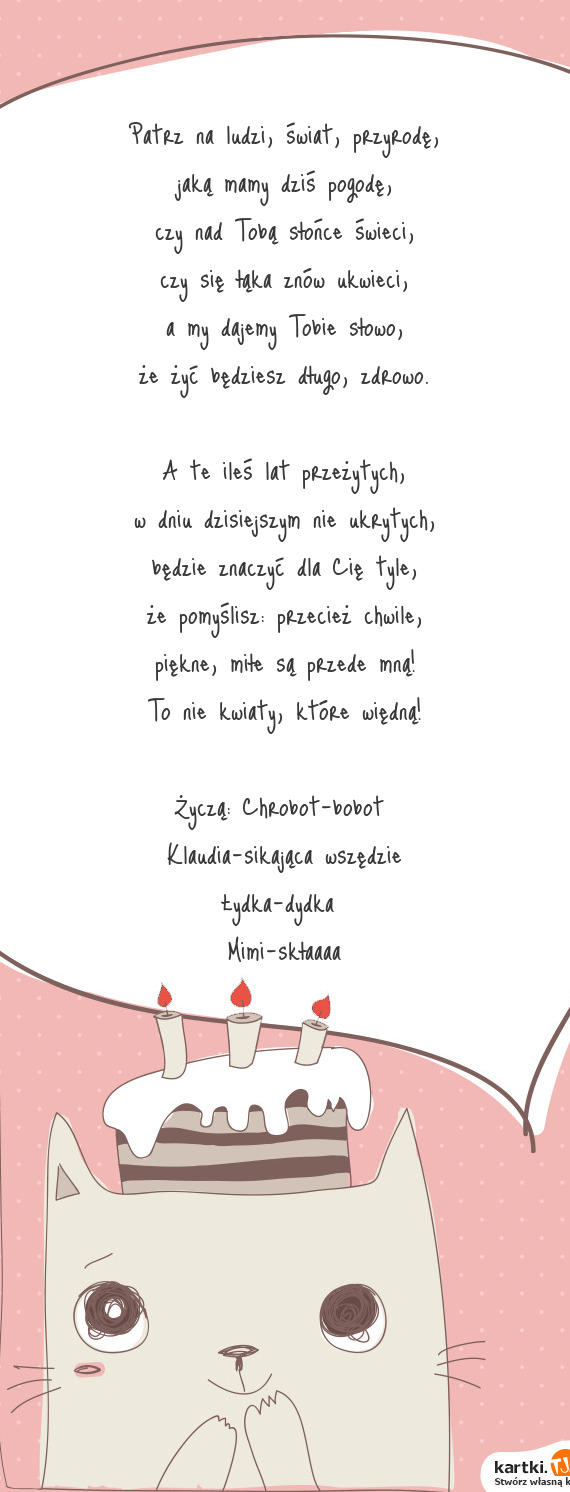 Patrz na ludzi, świat, przyrodę,
jaką mamy dziś pogodę,
czy nad Tobą słońce świeci,
czy się łąka znów ukwieci,
a my dajemy Tobie słowo,
że żyć będziesz długo, zdrowo.
A te ileś lat przeżytych,
w dniu dzisiejszym nie ukrytych,
będzie znaczyć dla Cię tyle,
że pomyślisz: przecież chwile,
piękne, miłe są przede mną!
To nie kwiaty, które więdną!
Życzą: Chrobot-bobot
Klaudia-sikająca wszędzie
Łydka-dydka
Mimi-skłaaaa
kartki.TJ
Stwórz własną k